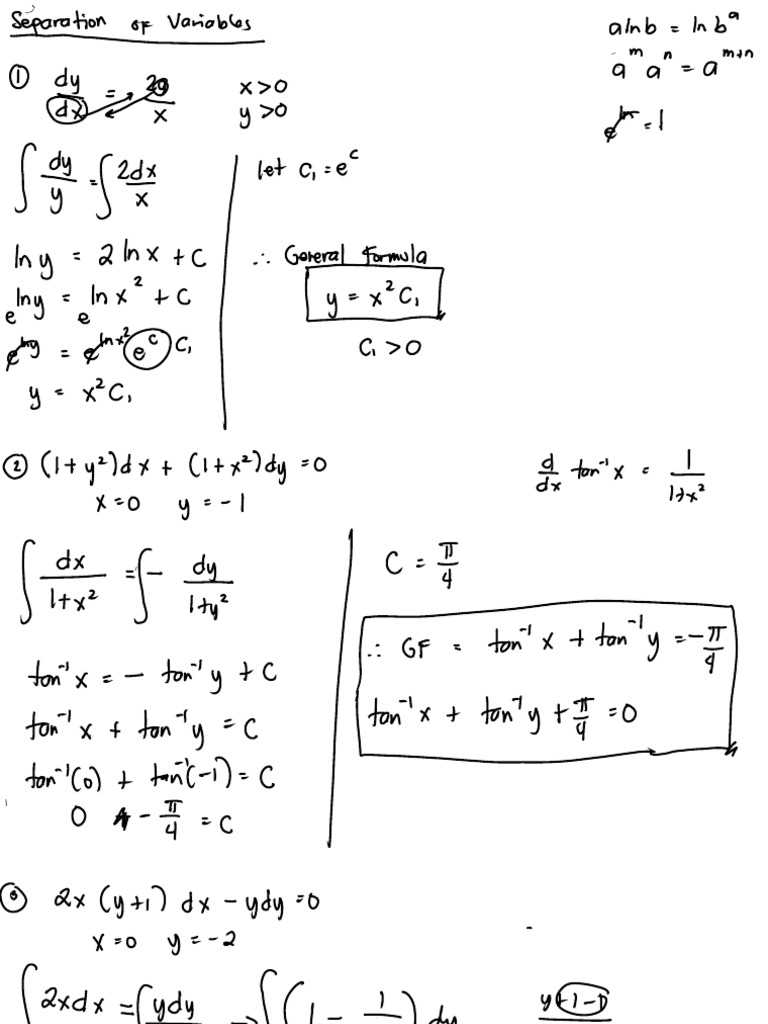 Separation of Variables
a ln b = ln b^a
a^m a^n = a^(m+n)
e^ln = 1
① dy/dx = 2y/x
x>0
y>0
∫ dy/y = ∫ 2dx/x
ln y = 2 ln x + C
e^(ln y) = e^(ln x² + C)
e^(ln y) = e^(ln x²) e^c C₁
y = x² C₁
let C₁ = e^c
∴ General Formula
y = x² C₁
C₁ > 0
② (1+y²)dx + (1+x²)dy = 0
x=0 y=-1
d/dx tan⁻¹x = 1/(1+x²)
∫ dx/(1+x²) = ∫ - dy/(1+y²)
tan⁻¹x = - tan⁻¹y + C
tan⁻¹x + tan⁻¹y = C
tan⁻¹(0) + tan⁻¹(-1) = C
0 - π/4 = C
C = π/4
∴ GF = tan⁻¹x + tan⁻¹y = -π/4
tan⁻¹x + tan⁻¹y + π/4 = 0
③ 2x (y+1) dx - ydy = 0
x=0 y=-2
∫ 2xdx = ∫ ydy → ∫ (1 - 1 ) dy
y+1-1